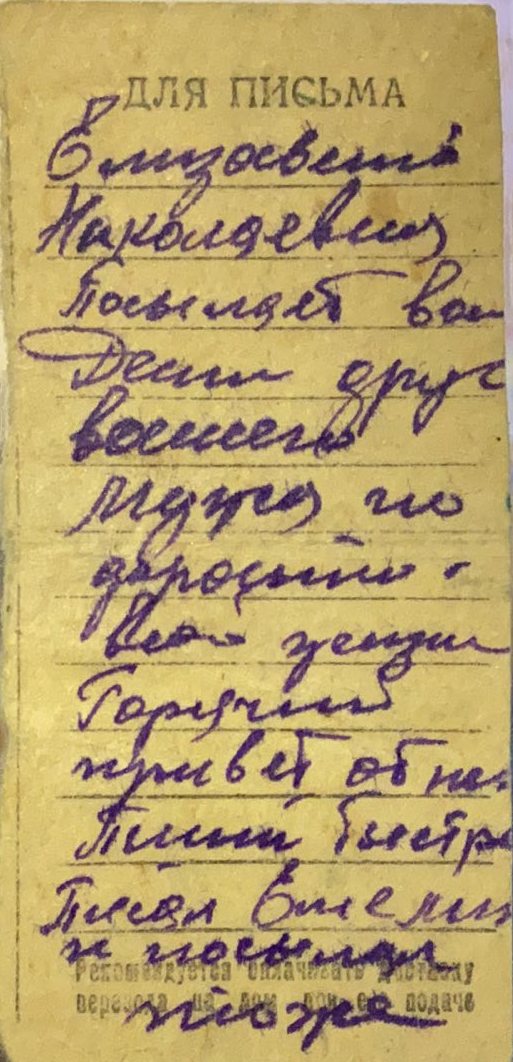 ДЛЯ ПИСЬМА
Елизавета
Николаевна
Посылает вам
Деньги друг
вашего
Мужа по

всей жизни
Горячий
привет от него
Пиши быстро
Писал Емелин
и посылал
тоже
Рекомендуется оплачивать доставку
перевода на дом при его подаче